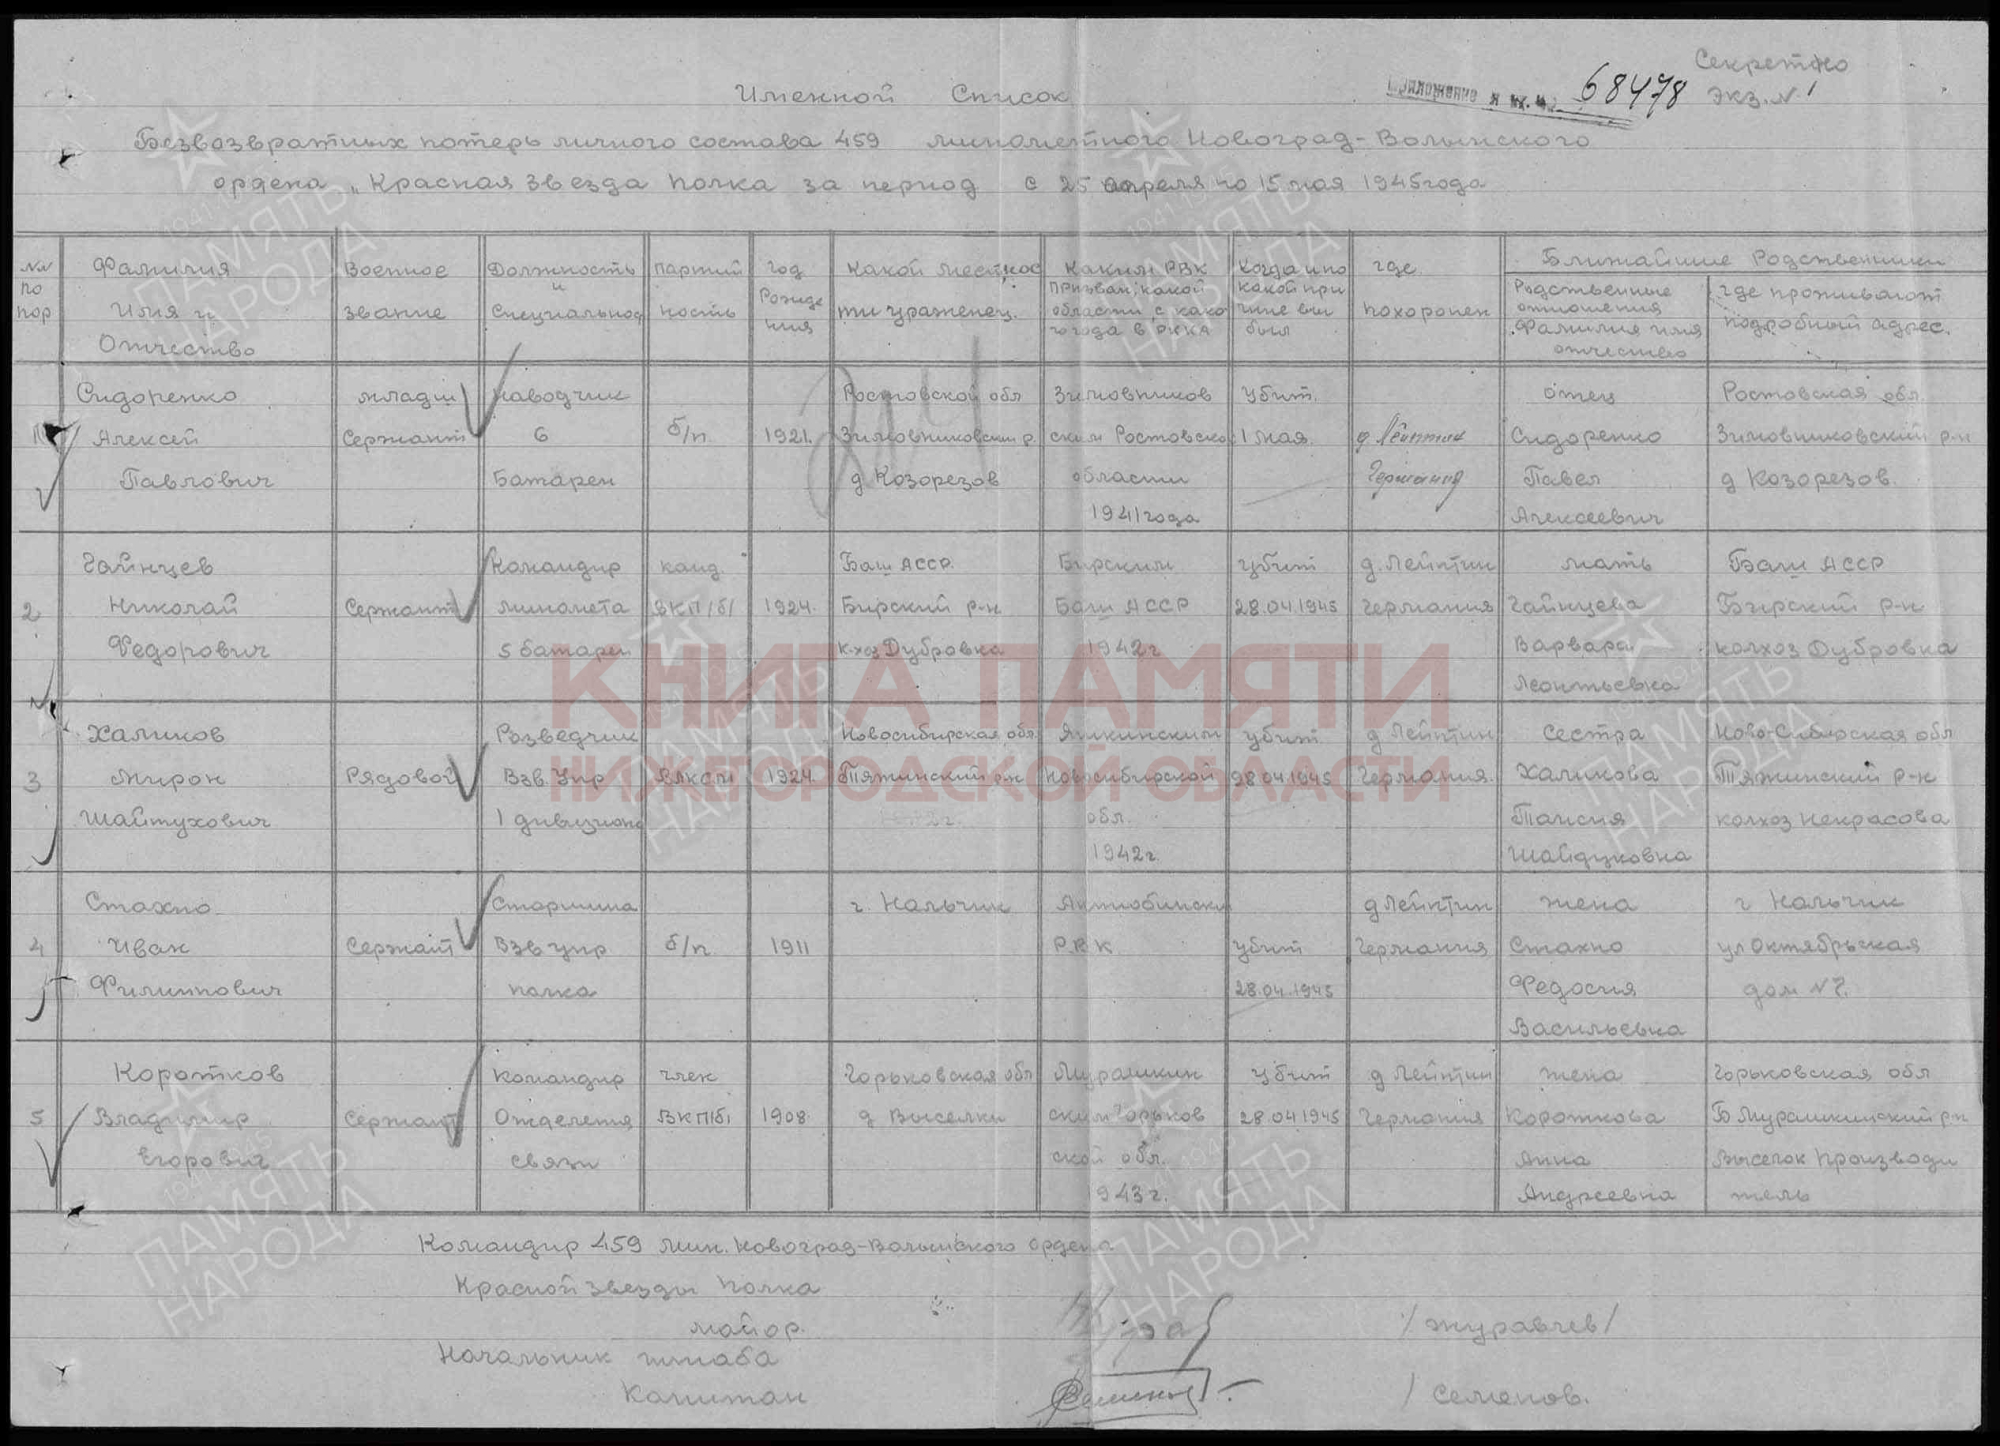 Секретно
Приложение к вх. № 68478 экз. N 1
Именной Список
Безвозвратных потерь личного состава 459 минометного Новоград-Волынского
ордена „Красная Звезда полка за период с 25 апреля по 15 мая 1945 года
№№ по пор
Фамилия Имя и Отчество
Военное звание
Должность и Специальност
Партий ность
Год Рожде ния
Какой местнос ти уроженец.
Каким РВК призван, какой области с како го года в РККА
Когда и по какой при чине вы был
где похоронен
Ближайшие Родственники
Родственные отношения Фамилия имя отчество
где проживают подробный адрес.
1
Сидоренко Алексей Павлович
младш Сержант
Наводчик 6 Батареи
б/п
1921.
Ростовской обл Зимовниковский р. д Козорезов
Зимовников ским Ростовско области 1941 года
Убит. 1 мая.
д Лейптин Германия
отец Сидоренко Павел Алексеевич
Ростовская обл. Зимовниковский р-н д Козорезов.
2
Гайнцев Николай Федорович
Сержант
Командир миномета 5 батареи
канд. ВКП/б/
1924.
Баш АССР. Бирский р-н к-хоз Дубровка
Бирским Баш АССР 1942 г
убит 28.04.1945
д. Лейптин Германия
мать Гайнцева Варвара Леонтьевна
Баш АССР Бирский р-н колхоз Дубровка
3
Халиков Мирон Шайтухович
Рядовой
Розведчик Взв. Упр 1 дивизиона
ВЛКСМ
1924.
Новосибирская обл. Тяжинский р-н
Яшкинским Новосибирской обл. 1942 г.
убит 28.04.1945
д Лейптин Германия.
Сестра Халикова Таисия Шайдуковна
Ново-Сибирская обл Тяжинский р-н колхоз Некрасова
4
Стахно Иван Филиппович
Сержант
Старшина Взв упр полка
б/п
1911
г. Нальчик
Актюбински Р.В.К
убит 28.04.1945
д Лейптин Германия
жена Стахно Федосия Васильевна
г Нальчик ул Октябрьская дом № 7.
5
Коротков Владимир Егорович
Сержант
Командир Отделения связи
член ВКП/б/
1908.
Горьковская обл д Выселки
Мурашкин ским Горьков ской обл. 1943 г.
убит 28.04 1945
д Лейптин Германия
жена Короткова Анна Андреевна
Горьковская обл Б Мурашкинский р-н Выселок Производи тель
Командир 459 мин. Новоград-Волынского ордена
Красной Звезды полка
майор. / Журавлев /
Начальник штаба
Капитан Семенов / Семенов.
КНИГА ПАМЯТИ
НИЖЕГОРОДСКОЙ ОБЛАСТИ
1941-1945
ПАМЯТЬ
НАРОДА